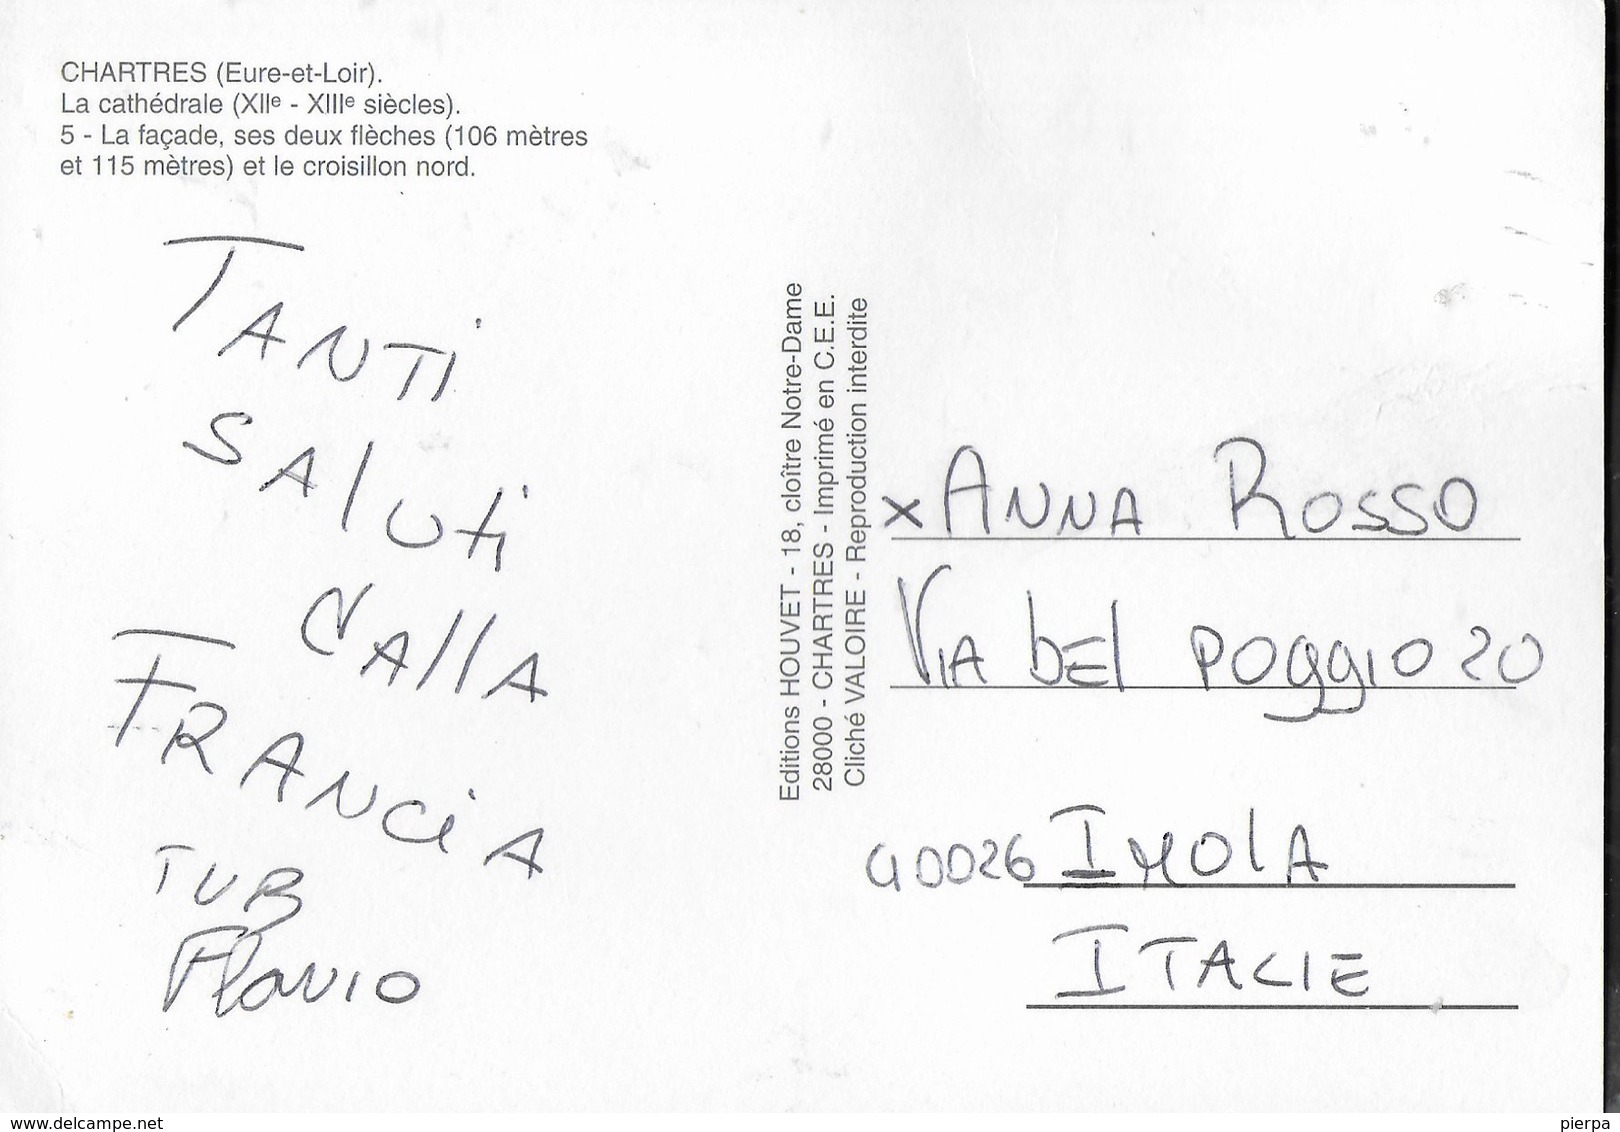 CHARTRES (Eure-et-Loir).
La cathédrale (XIIe - XIIIe siècles).
5 - La façade, ses deux flèches (106 mètres
et 115 mètres) et le croisillon nord.
TANTI
SAluti
dAllA
FRANCiA
TVB
Flavio
Editions HOUVET - 18, cloître Notre-Dame
28000 - CHARTRES - Imprimé en C.E.E.
Cliché VALOIRE - Reproduction interdite
x ANNA ROSSO
VIA DEL POGGIO 20
40026 IMOLA
ITALIE
www.delcampe.net
pierpa